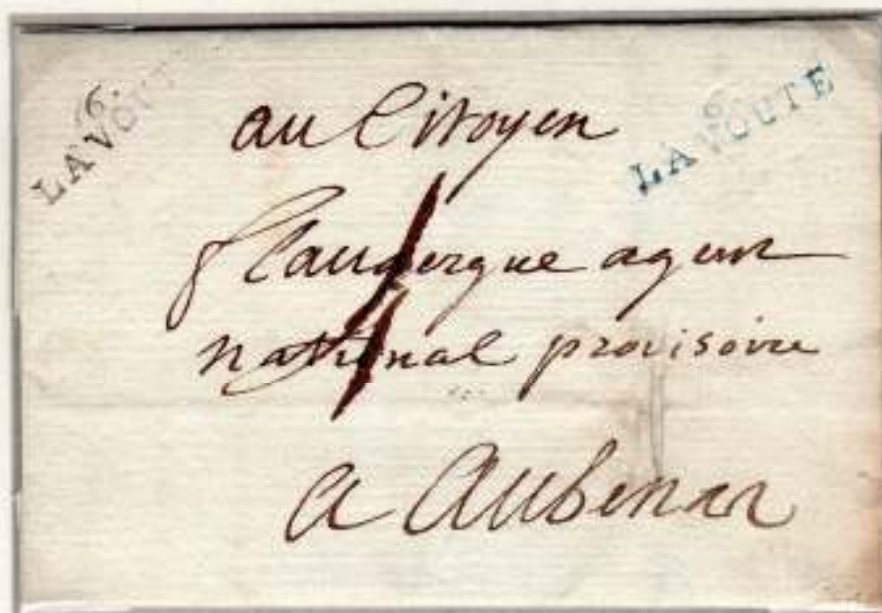 6.
LAVOUTE
6.
LAVOUTE
au Citoyen
flaugergue agent
national provisoire
a Aubenas